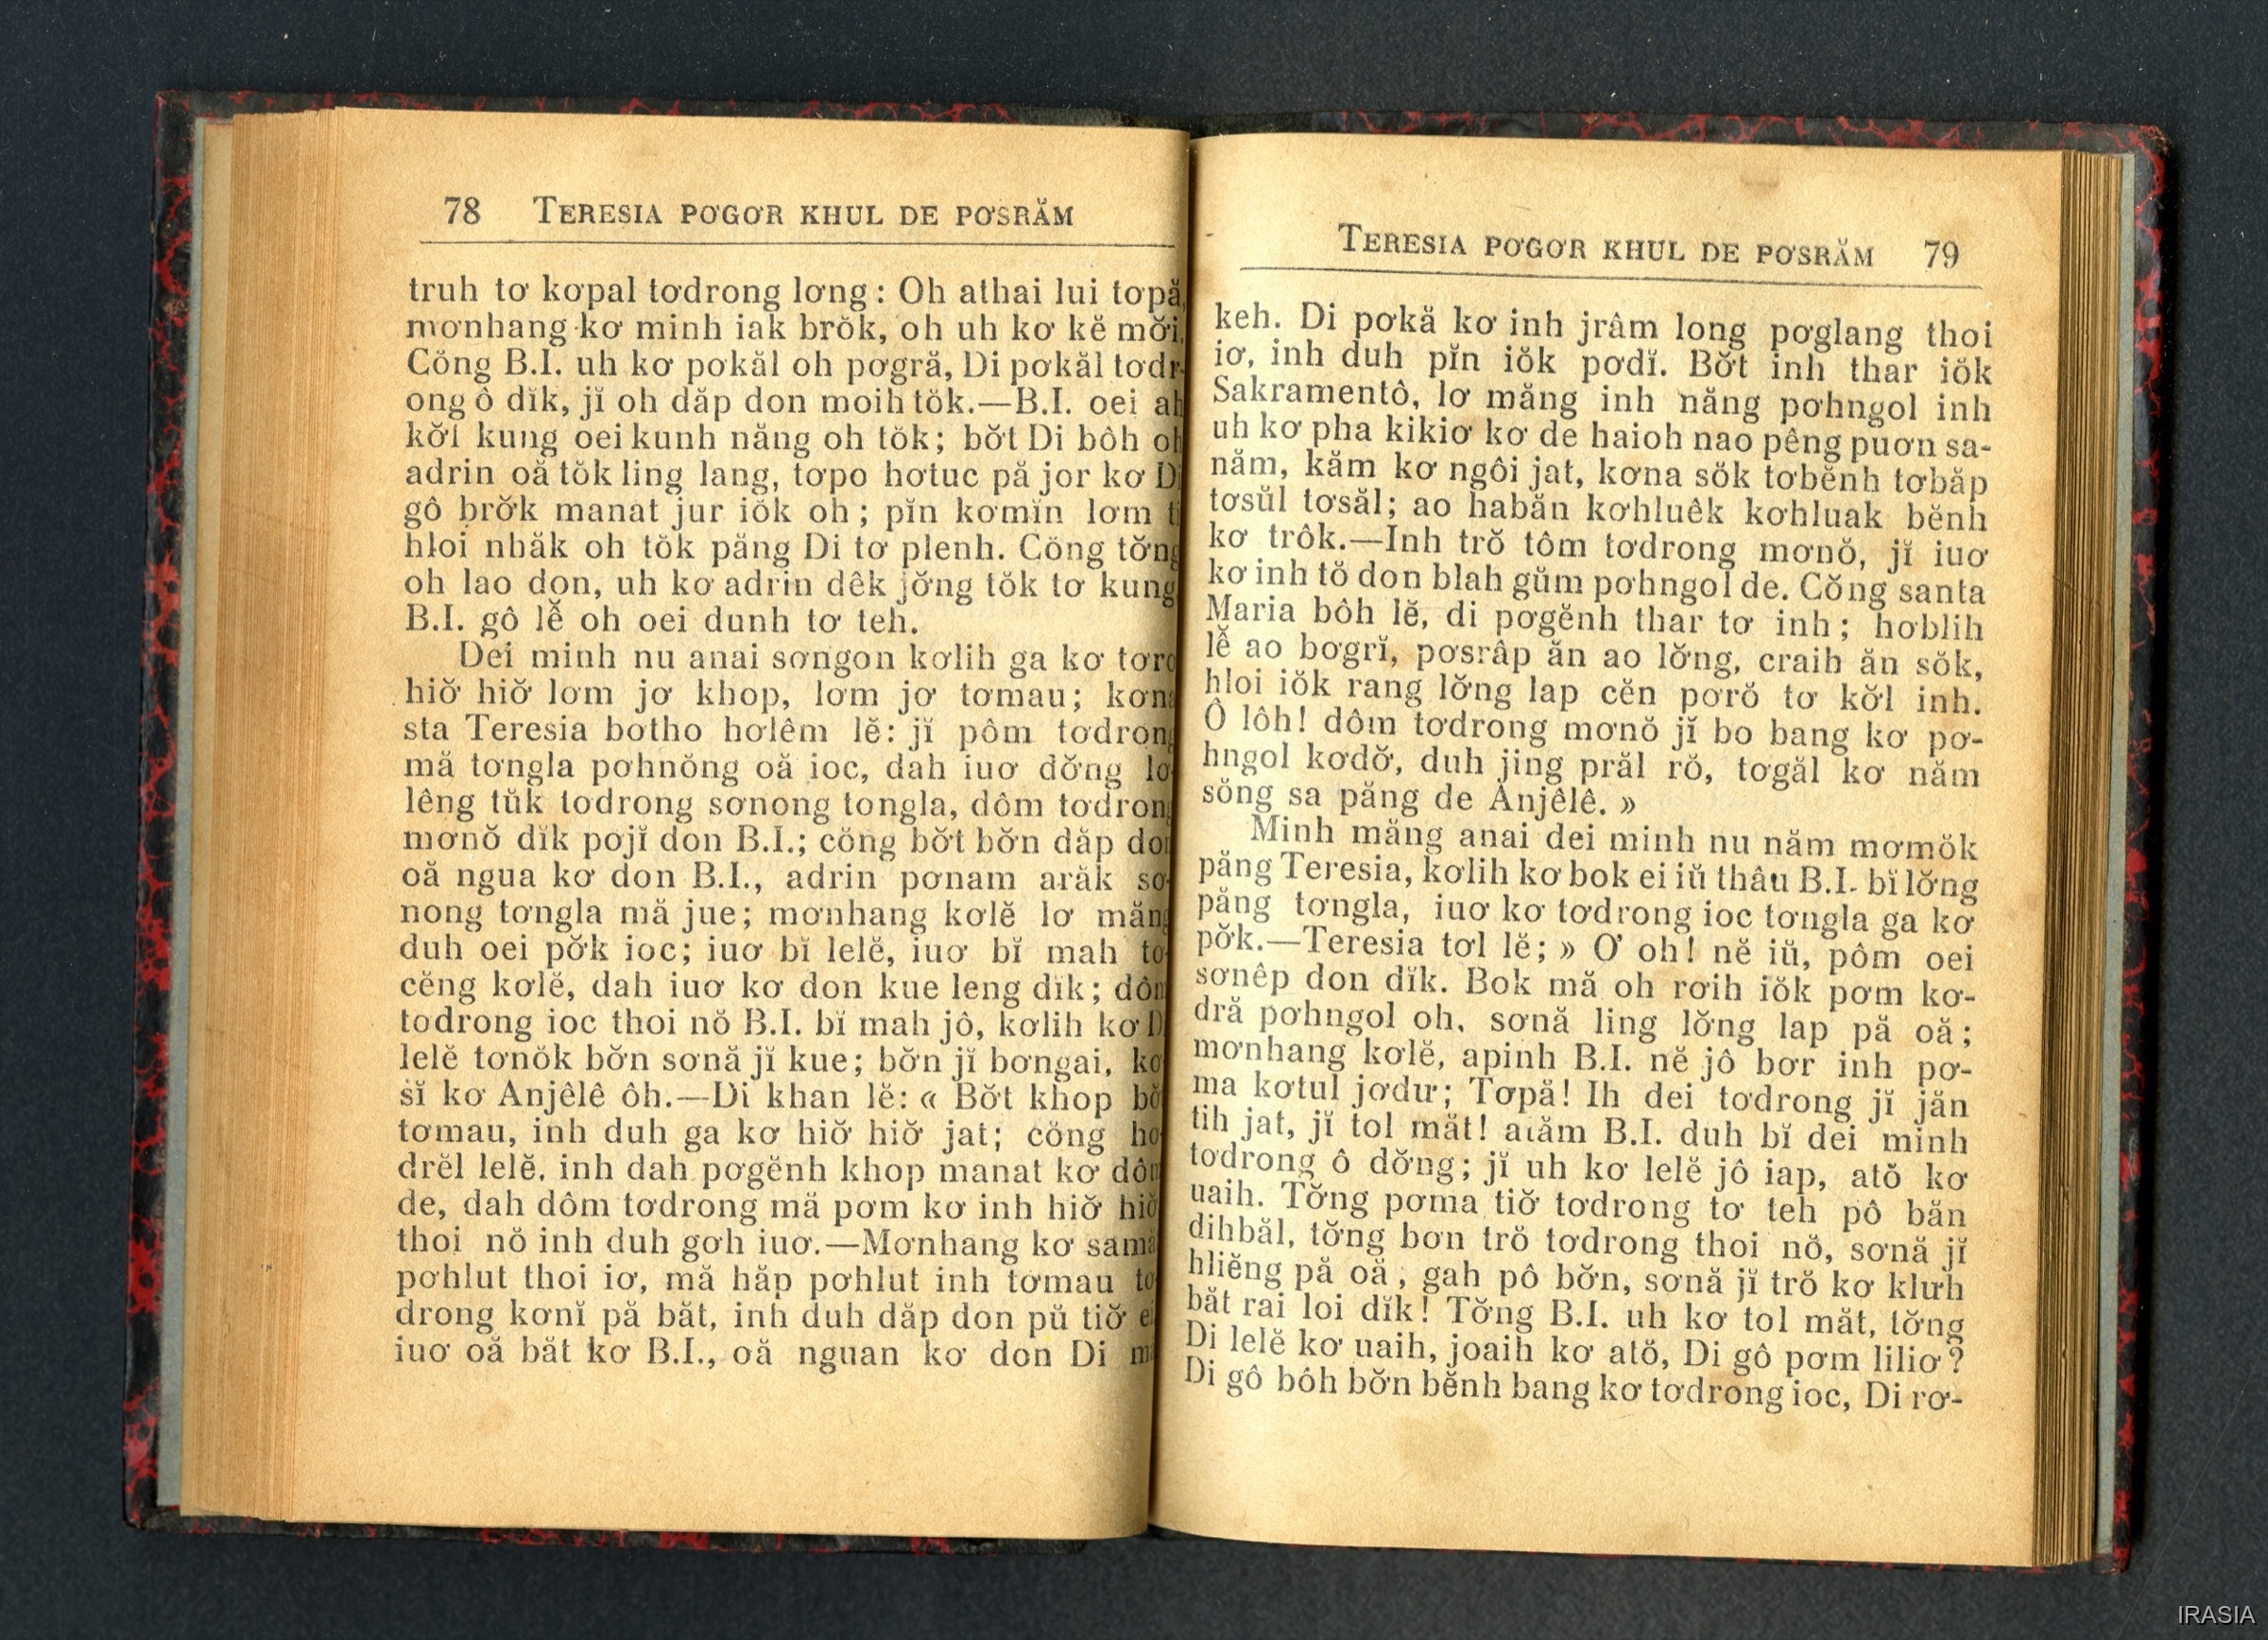 78 TERESIA PƠGƠR KHUL DE PƠSRĂM
truh tơ kơpal tơdrong lơng : Oh athai lui tơpă,
mơnhang kơ minh iak brŏk, oh uh kơ kĕ mơ̆i.
Cŏng B.I. uh kơ pơkăl oh pơgră, Di pơkăl tơdr-
ong ô dĭk, jĭ oh dăp don moih tŏk.—B.I. oei ah
kơ̆l kung oei kunh năng oh tŏk; bơ̆t Di bôh oh
adrin oă tŏk ling lang, tơpo hơtuc pă jor kơ Di
gô brơ̆k manat jur iŏk oh ; pĭn kơmĭn lơm ti
hloi nhăk oh tŏk păng Di tơ plenh. Cŏng tơ̆ng
oh lao don, uh kơ adrin dêk jơ̆ng tŏk tơ kung,
B.I. gô lễ oh oei dunh tơ teh.
Dei minh nu anai sơngon kơlih ga kơ tơro
hiơ̆ hiơ̆ lơm jơ khop, lơm jơ tơmau; kơna
sta Teresia bơtho hơlêm lĕ: jĭ pôm tơdrong
mă tơngla pơhnŏng oă ioc, dah iuơ dơ̆ng lơ-
lêng tŭk tơdrong sơnong tơngla, dôm tơdrong
mơnŏ dĭk pơjĭ don B.I.; cŏng bơ̆t bơ̆n dăp don
oă ngua kơ don B.I., adrin pơnam arăk sơ-
nong tơngla mă jue; mơnhang kơlĕ lơ măng
duh oei pơ̆k ioc; iuơ bĭ lelĕ, iuơ bĭ mah tơ-
cĕng kơlĕ, dah iuơ kơ don kue leng dĭk; dôm
tơdrong ioc thoi nŏ B.I. bĭ mah jô, kơlih kơ Di
lelĕ tơnŏk bơ̆n sơnă jĭ kue; bơ̆n jĭ bơngai, kơ
sĭ kơ Anjêlê ôh.—Di khan lĕ: « Bơ̆t khop bơ̆
tơmau, inh duh ga kơ hiơ̆ hiơ̆ jat; cŏng hơ-
drĕl lelĕ, inh dah pơgĕnh khop manat kơ dôm
de, dah dôm tơdrong mă pơm kơ inh hiơ̆ hiơ̆
thoi nŏ inh duh gơh iuơ.—Mơnhang kơ samă
pơhlut thoi iơ, mă hăp pơhlut inh tơmau tơ-
drong kơnĭ pă băt, inh duh dăp don pŭ tiơ̆ ei
iuơ oă băt kơ B.I., oă nguan kơ don Di
TERESIA PƠGƠR KHUL DE PƠSRĂM 79
keh. Di pơkă kơ inh jrâm long pơglang thoi
iơ, inh duh pĭn iŏk pơdĭ. Bơ̆t inh thar iŏk
Sakramentô, lơ măng inh năng pơhngol inh
uh kơ pha kikiơ kơ de haioh nao pêng puơn sa-
năm, kăm kơ ngôi jat, kơna sŏk tơbĕnh tơbăp
tơsŭl tơsăl; ao habăn kơhluêk kơhluak bĕnh
kơ trôk.—Inh trŏ tôm tơdrong mơnŏ, jĭ iuơ
kơ inh tŏ don blah gŭm pơhngol de. Cŏng santa
Maria bôh lĕ, di pơgĕnh thar tơ inh ; hơblih
lễ ao bơgrĭ, pơsrâp ăn ao lơ̆ng, craih ăn sŏk,
hloi iŏk rang lơ̆ng lap cĕn pơrŏ tơ kơ̆l inh.
Ô lôh! dôm tơdrong mơnŏ jĭ bo bang kơ pơ-
hngol kơdơ̆, duh jing prăl rŏ, tơgăl kơ năm
sŏng sa păng de Anjêlê. »
Minh măng anai dei minh nu năm mơmŏk
păng Teresia, kơlih kơ bok ei iŭ thâu B.I. bĭ lơ̆ng
păng tơngla, iuơ kơ tơdrong ioc tơngla ga kơ
pơ̆k.—Teresia tơl lĕ; » Ơ oh! nĕ iŭ, pôm oei
sơnêp don dĭk. Bok mă oh rơih iŏk pơm kơ-
dră pơhngol oh, sơnă ling lơ̆ng lap pă oă;
mơnhang kơlĕ, apinh B.I. nĕ jô bơr inh pơ-
ma kơtul jơdư; Tơpă! Ih dei tơdrong jĭ jăn
tih jat, jĭ tol măt! atăm B.I. duh bĭ dei minh
tơdrong ô dơ̆ng; jĭ uh kơ lelĕ jô iap, atŏ kơ
uaih. Tơ̆ng pơma tiơ̆ tơdrong tơ teh pô băn
dihbăl, tơ̆ng bơn trŏ tơdrong thoi nŏ, sơnă jĭ
hliĕng pă oă , gah pô bơ̆n, sơnă jĭ trŏ kơ klưh
băt rai loi dĭk! Tơ̆ng B.I. uh kơ tol măt, tơ̆ng
Di lelĕ kơ uaih, joaih kơ atŏ, Di gô pơm liliơ?
Di gô bôh bơ̆n bĕnh bang kơ tơdrong ioc, Di rơ-
IRASIA